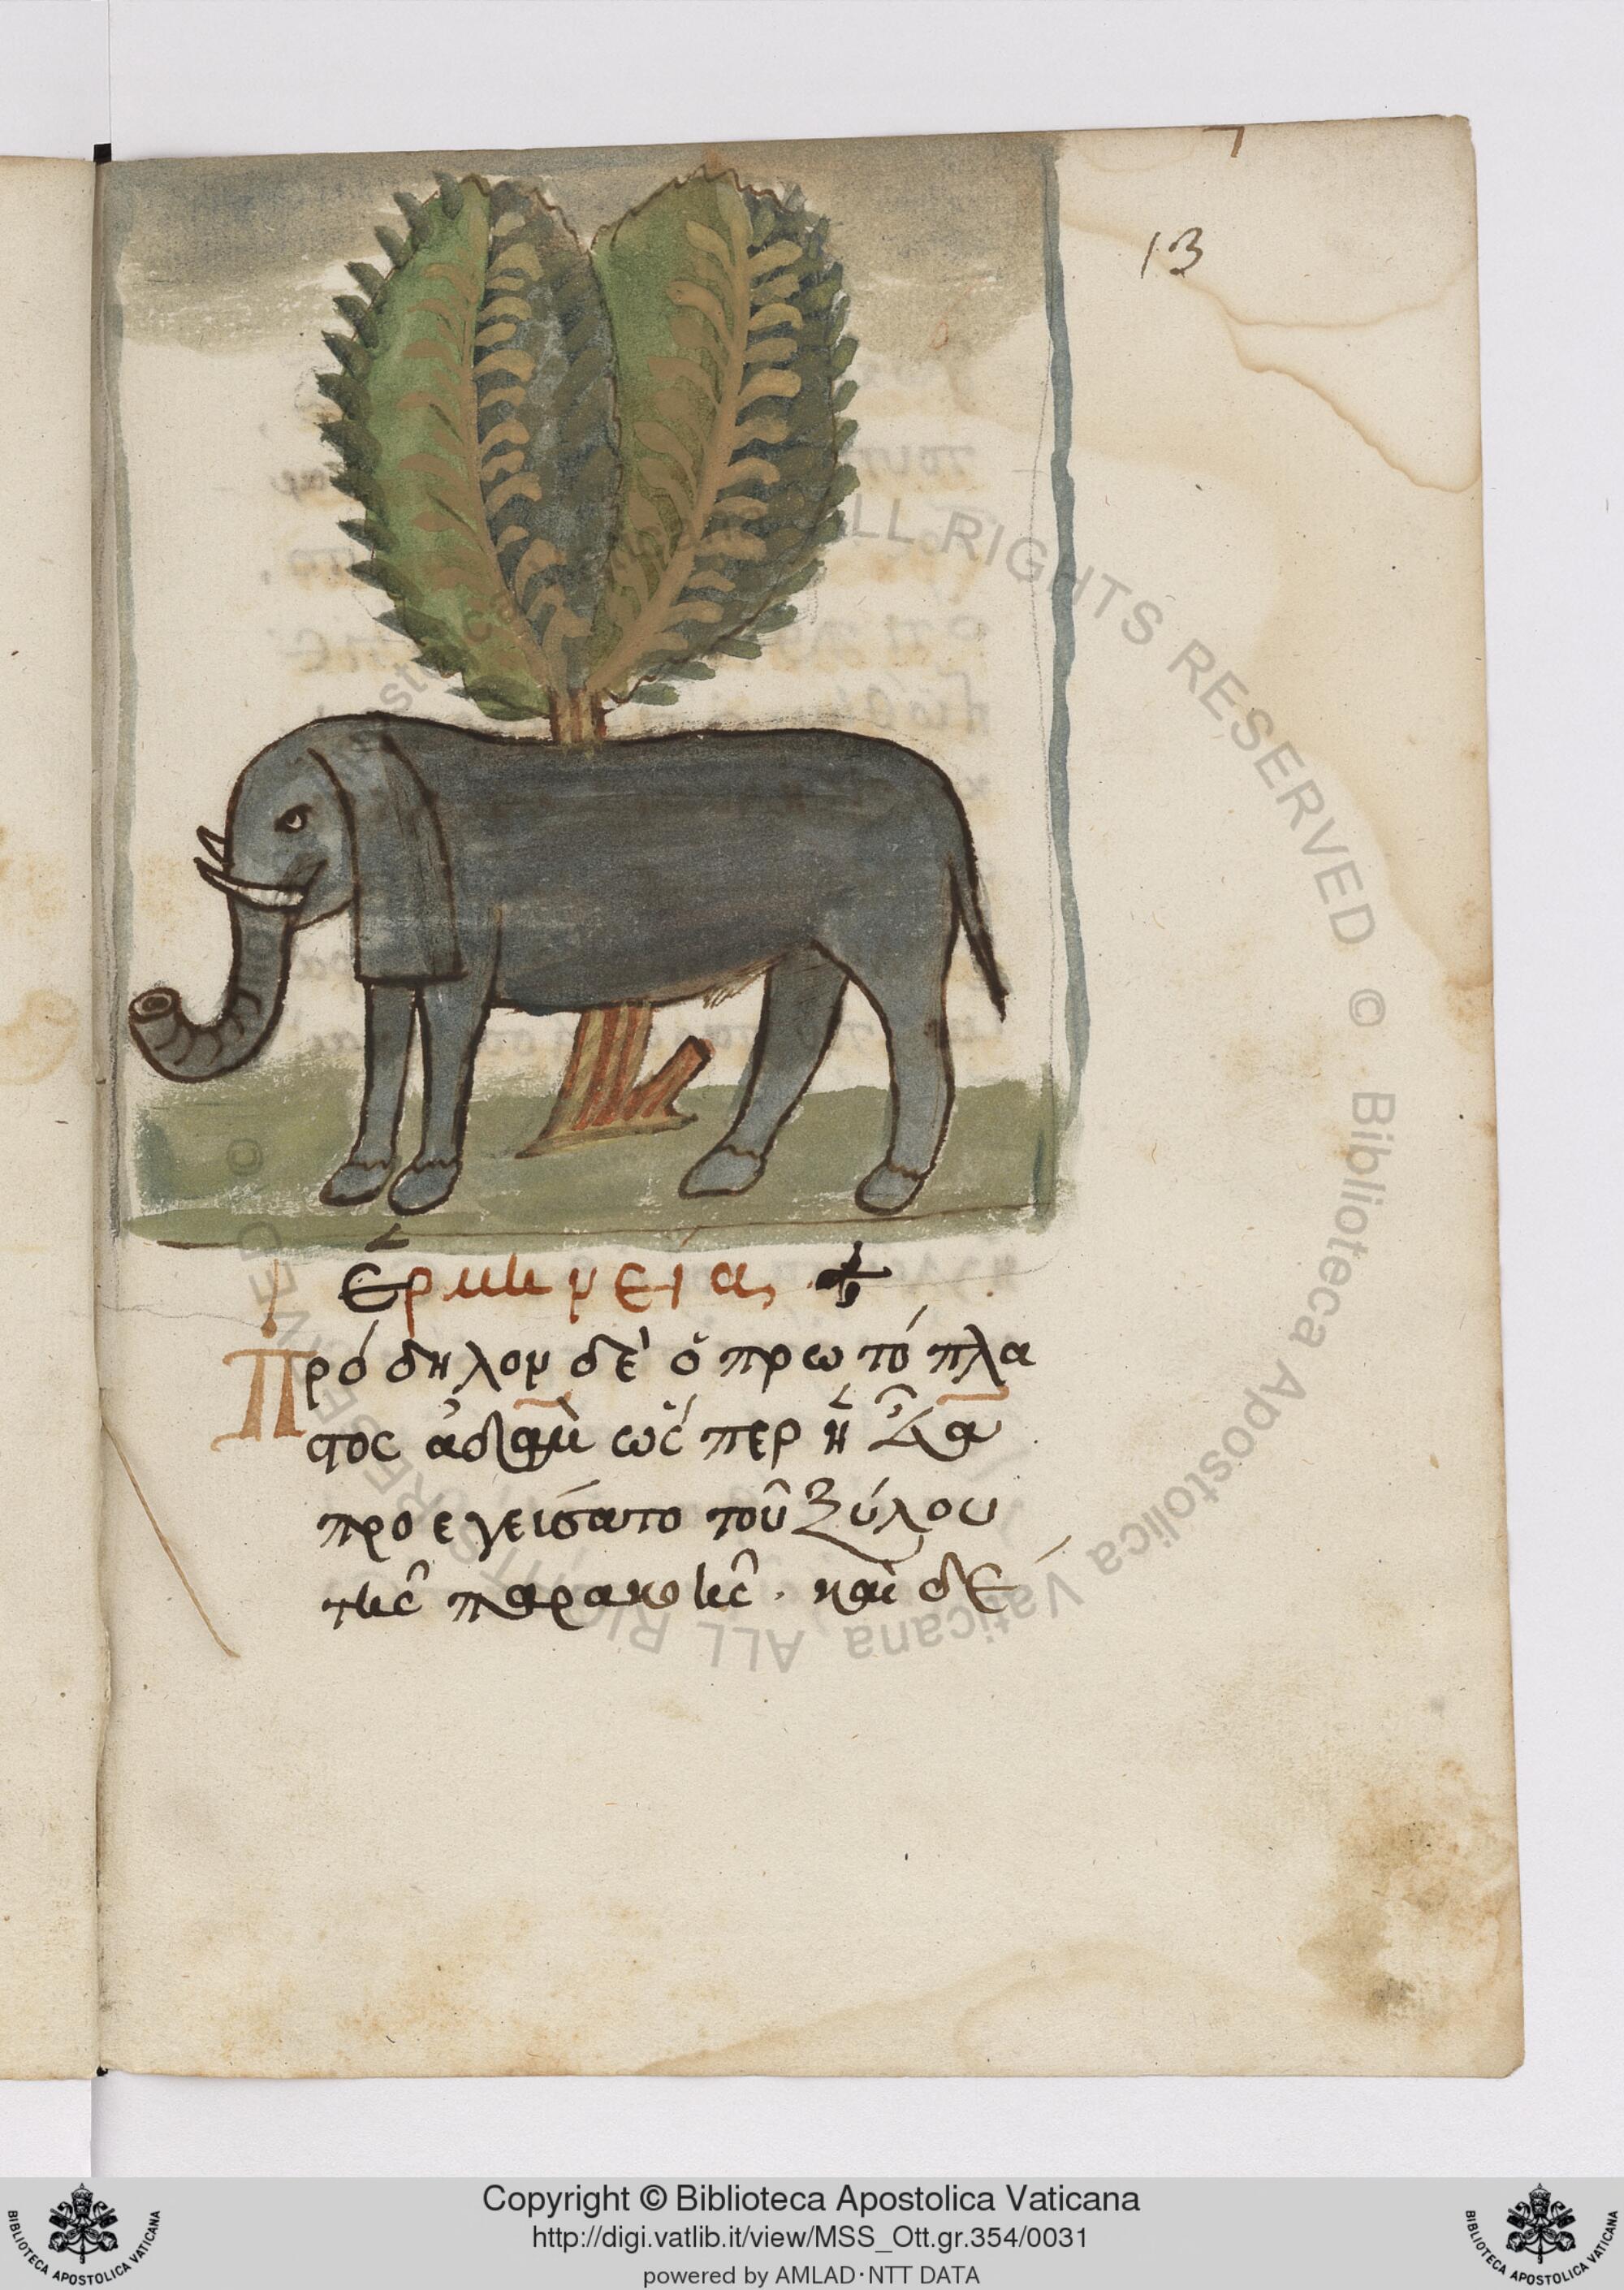 13
Ερμηνεία
Πρόδηλον δὲ ὁ πρωτόπλα
στος ἀδὰμ ὥσπερ ἢ
προεγείσατο τοῦ ξύλου
τῆς παρακοῆς · καὶ δέ
ALL RIGHTS RESERVED © Biblioteca Apostolica Vaticana
Copyright © Biblioteca Apostolica Vaticana
http://digi.vatlib.it/view/MSS_Ott.gr.354/0031
powered by AMLAD·NTT DATA
BIBLIOTECA APOSTOLICA VATICANA
BIBLIOTECA APOSTOLICA VATICANA